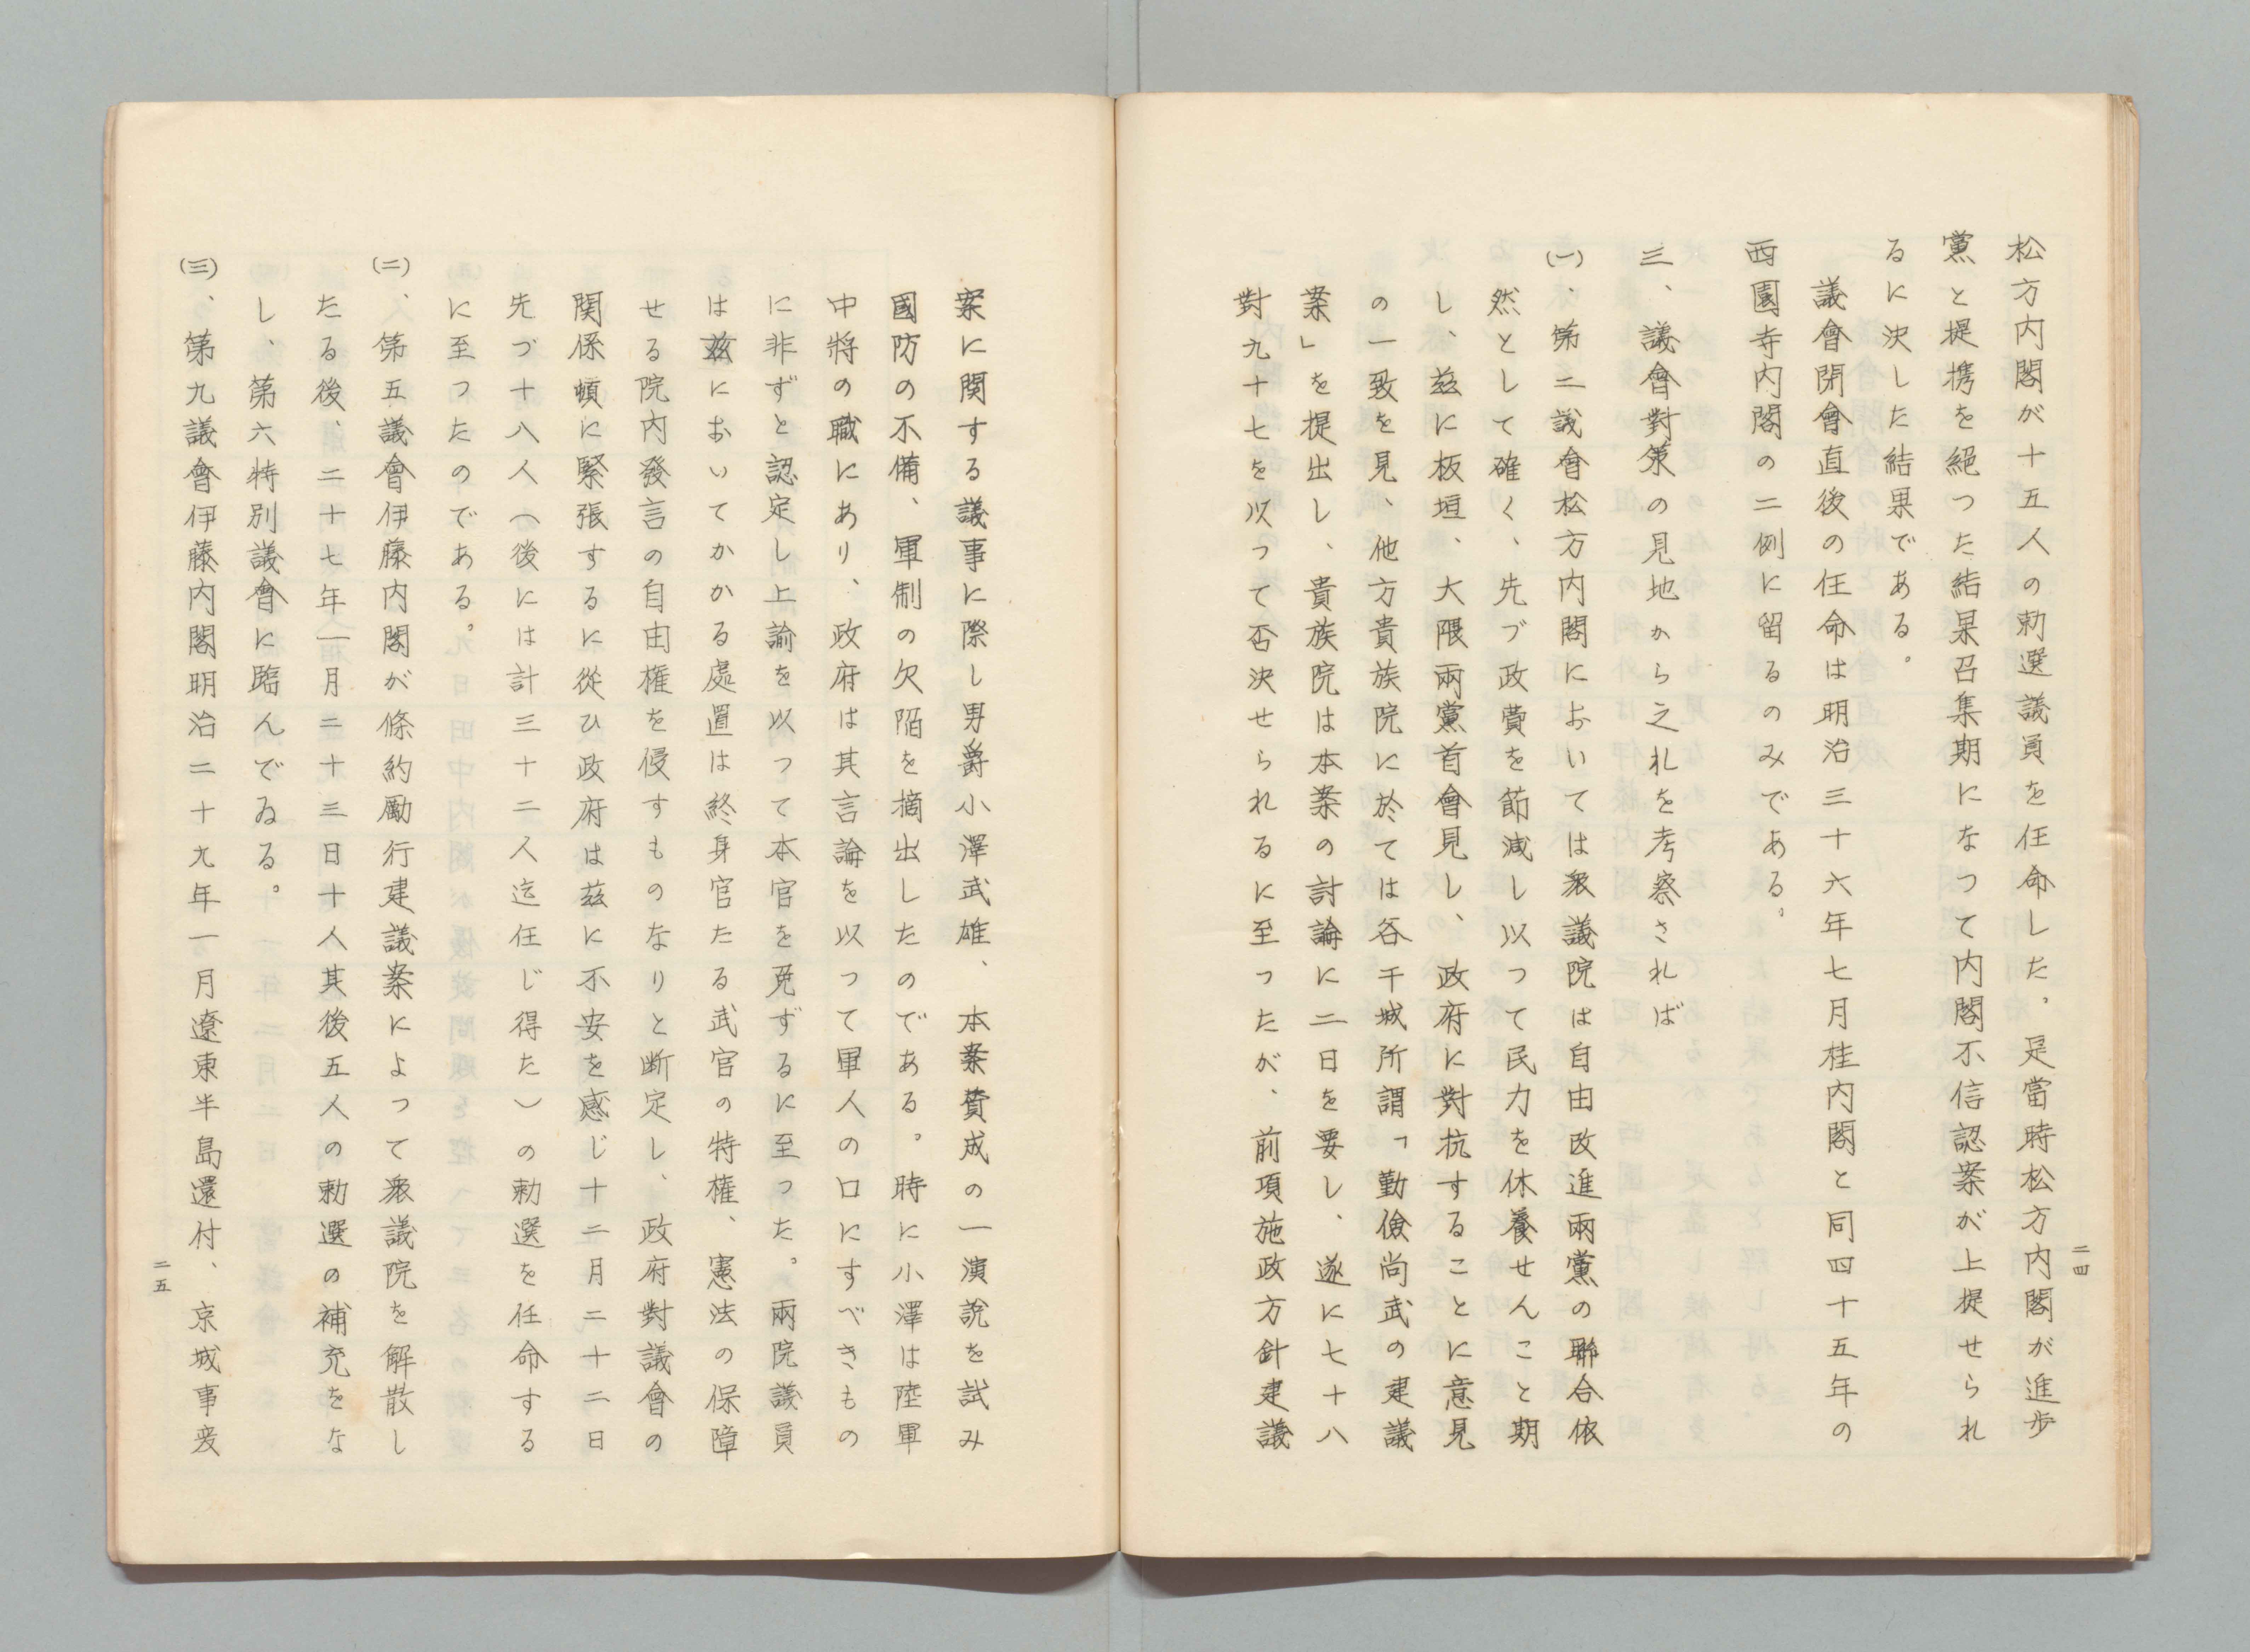 松方内閣が十五人の勅選議員を任命した。是當時松方内閣が進歩
黨と提携を絕つた結果召集期になつて内閣不信認案が上提せられ
るに決した結果である。
議會閉會直後の任命は明治三十六年七月桂内閣と同四十五年の
西園寺内閣の二例に留るのみである。
三、議會對策の見地から之れを考察されば
(一)、第二議會松方内閣においては衆議院は自由改進兩黨の聯合依
然として確く、先づ政費を節減し以つて民力を休養せんこと期
し、茲に板垣、大隈兩黨首會見し、政府に對抗することに意見
の一致を見、他方貴族院に於ては谷干城所謂「勤儉尚武の建議
案」を提出し、貴族院は本案の討論に二日を要し、遂に七十八
對九十七を以つて否決せられるに至つたが、前項施政方針建議
二四
案に関する議事に際し男爵小澤武雄、本案賛成の一演説を試み
國防の不備、軍制の欠陥を摘出したのである。時に小澤は陸軍
中將の職にあり、政府は其言論を以つて軍人の口にすべきもの
に非ずと認定し上諭を以つて本官を免ずるに至つた。兩院議員
は茲においてかかる處置は終身官たる武官の特権、憲法の保障
せる院内發言の自由権を侵すものなりと断定し、政府對議會の
関係頓に緊張するに從ひ政府は茲に不安を感じ十二月二十二日
先づ十八人(後には計三十二人迄任じ得た)の勅選を任命する
に至つたのである。
(二)、第五議會伊藤内閣が條約勵行建議案によつて衆議院を解散し
たる後、二十七年一月二十三日十人其後五人の勅選の補充をな
し、第六特別議會に臨んでゐる。
(三)、第九議會伊藤内閣明治二十九年一月遼東半島還付、京城事変
二五